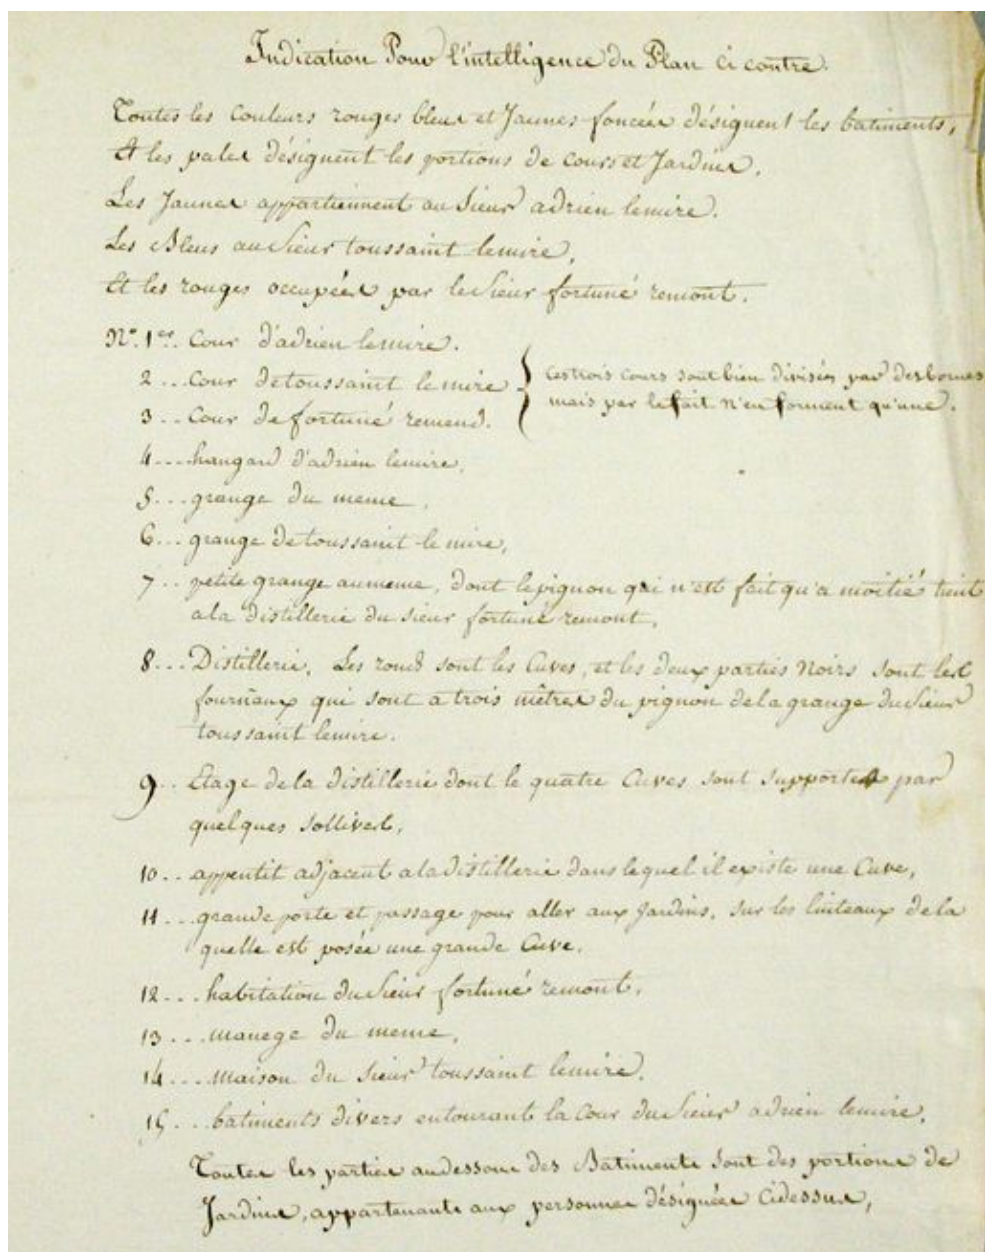 Indication Pour l'intelligence du Plan ci contre.
Toutes les couleurs rouges bleues et Jaunes foncées désignent les batiments,
Et les pales désignent les portions de cours et Jardins.
Les Jaunes appartiennent au Sieur adrien lemire.
Les Bleus au Sieur toussaint lemire,
Et les rouges occupées par le Sieur fortuné remont.
N.º 1er. Cour d'adrien lemire.
2 ... Cour de toussaint lemire
3 .. Cour de fortuné remond.
Ces trois cours sont bien divisées par des bornes
mais par le fait n'en forment qu'une.
4 .... hangard d'adrien lemire,
5 ... grange du meme,
6 ... grange de toussaint lemire,
7 .. petite grange au meme, dont le pignon qui n'est fait qu'a moitié tient
a la distillerie du sieur fortuné remont,
8 ... Distillerie, Les ronds sont les Cuves, et les deux parties Noirs sont les
fourneaux qui sont a trois mètres du pignon de la grange du Sieur
toussaint lemire.
9 .. Etage de la distillerie dont le quatre Cuves sont supportes par
quelques sollives,
10 .. appentit adjacent a la distillerie dans lequel il existe une Cuve,
11 ... grande porte et passage pour aller aux Jardins, sur les linteaux de la
quelle est posée une grande Cuve,
12 ... habitation du Sieur fortuné remont,
13 ... manege du meme,
14 .... maison du Sieur toussaint lemire,
15 ... batiments divers entourant la Cour du Sieur adrien lemire,
Toutes les parties audessous des Batiments sont des portions de
Jardins, appartenants aux personnes désignées Cidessus,